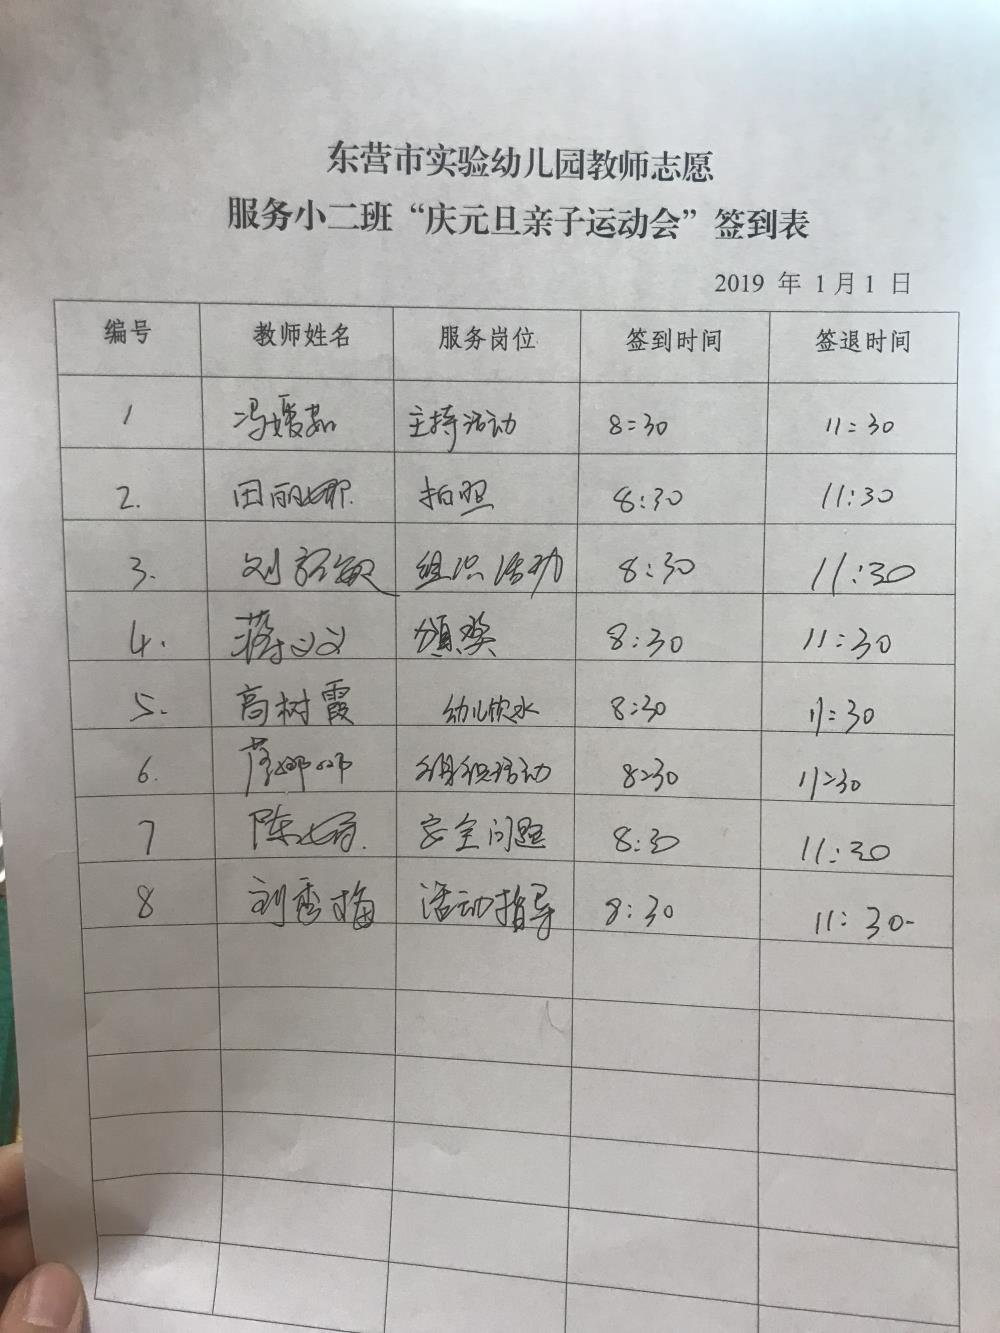 东营市实验幼儿园教师志愿
服务小二班“庆元旦亲子运动会”签到表
2019 年 1月1 日
编号 教师姓名 服务岗位 签到时间 签退时间
1 冯媛茹 主持活动 8:30 11:30
2. 田丽娜. 拍照 8:30 11:30
3. 刘 敏 组织活动 8:30 11:30
4. 蒋义义 颁奖 8:30 11:30
5. 高树霞 幼儿饮水 8:30 11:30
6. 组织活动 8:30 11:30
7 陈 安全问题 8:30 11:30
8 刘秀梅 活动指导 8:30 11:30